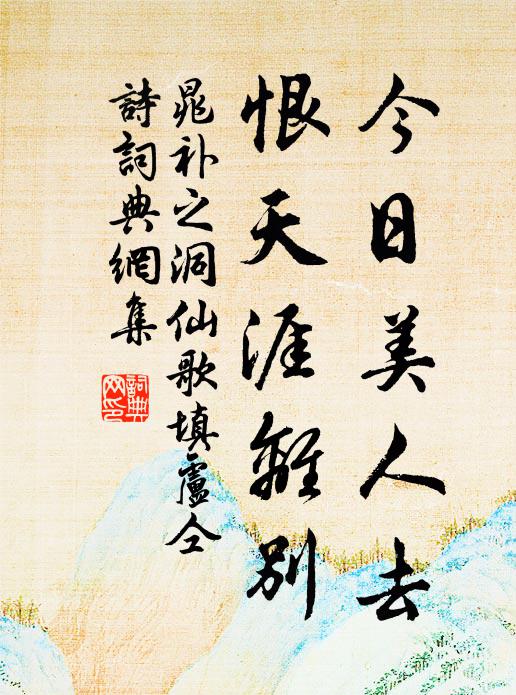 今日美人去
恨天涯離別
晁补之洞仙歌填盧仝
詩詞典網集
詞典
网印